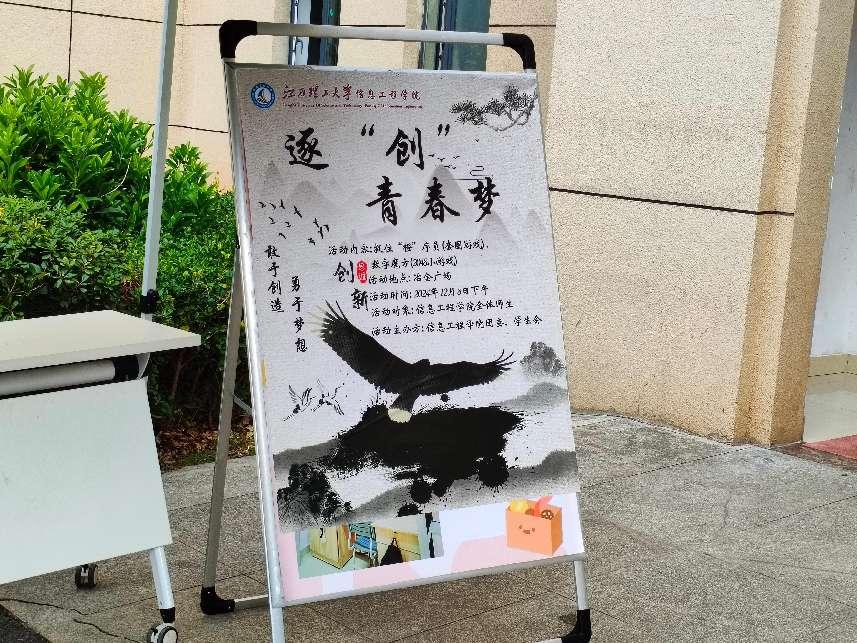 江西理工大学信息工程学院
逐“创”
青春梦
活动内容:抓住“橙”序员(套圈游戏),
数字魔方(2048小游戏)
活动地点: 冶金广场
活动时间: 2024年12月8日下午
活动对象: 信息工程学院全体师生
活动主办方: 信息工程学院团委、学生会
创新
敢于创造
勇于梦想